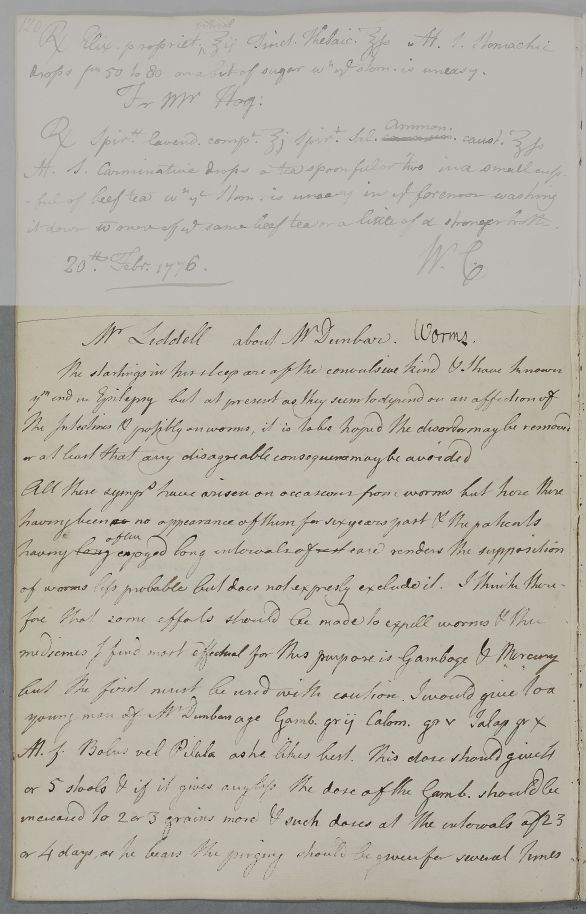 120
Rx Elix. propriet. vitriol. ʒij Tinct. Thebaic. ʒſs M. S. Stomachic
drops from 50 to 80 on a bit of sugar wn ye stom. is uneasy.
For Mr Hog:
Rx Spirtt Lavend. compt. ℥j Spirt. Sal. Ammon. caust. ℥ſs
M. S. Carminative drops a tea spoonful or two in a small cup-
-ful of beef tea wn ye stom. is uneasy in ye forenoon washing
it down wt more of ye same beef tea or a little of a stronger broth.
20th Febr. 1776. W. C.
Mr Liddell about Mr Dunbar. Worms.
The startings in his sleep are of the convulsive kind & I have known
ym end in Epilepsy but at present as they seem to depend on an affection of
the Intestines & poſsibly on worms, it is to be hoped the disorder may be removed
or at least that any disagreable consequence may be avoided
All these sympts have arisen on occasions from worms but here there
having been no appearance of them for six years past & the patients
having often enjoyed long intervals of ease renders the supposition
of worms leſs probable but does not expresly exclude it. I think there-
fore that some efforts should be made to expell worms & the
medicines I find most effectual for this purpose is Gamboge & Mercury
but the first must be used with caution. I would give to a
young man of Mr Dunbars age Gamb. gr iij Calom. gr v Jalap gr x
M. f. Bolus vel Pilula as he likes best. This dose should give 4
or 5 stools & if it gives any leſs the dose of the Gamb. should be
increased to 2 or 3 grains more & such doses at the intervals of 2 3
or 4 days, as he bears the purging should be given for several times